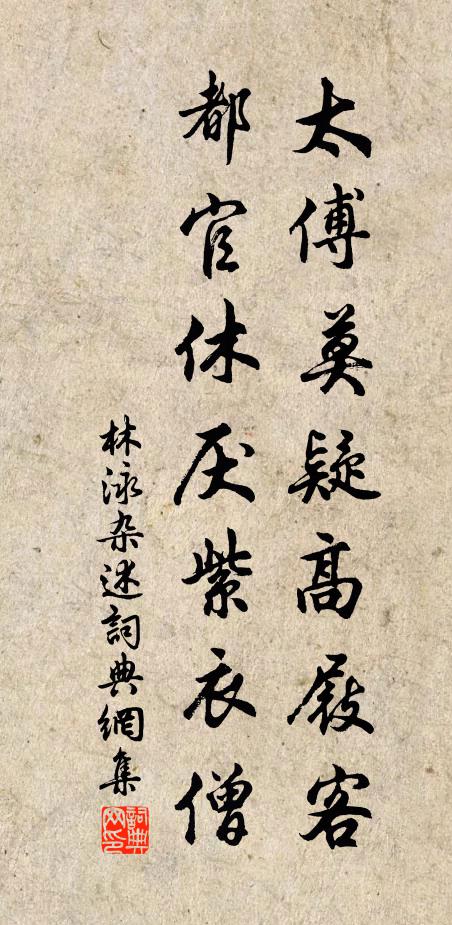 太傅莫疑高屐客
都官休厌紫衣僧
林泳杂述詞典網集
詞典网印